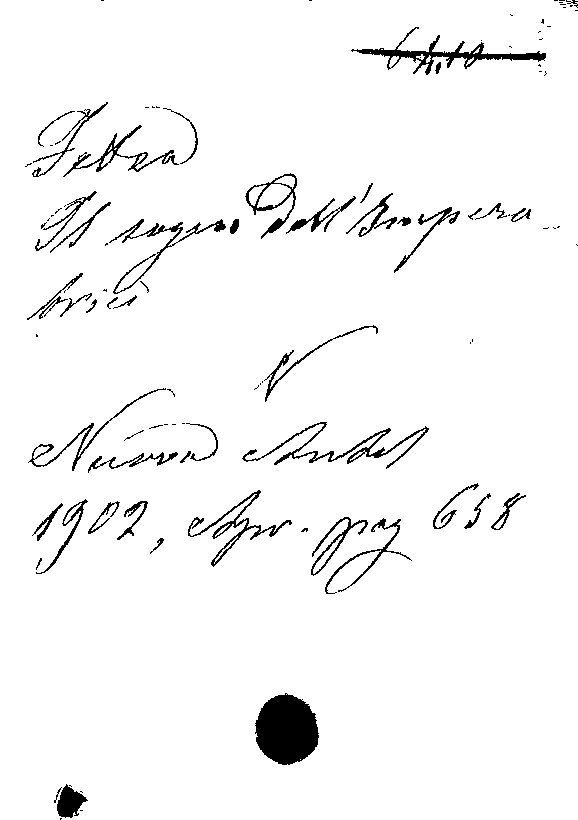 64.10
Febea
Il sogno dell'Impera-
trice
V
Nuova Antol
1902, Apr. pag 658